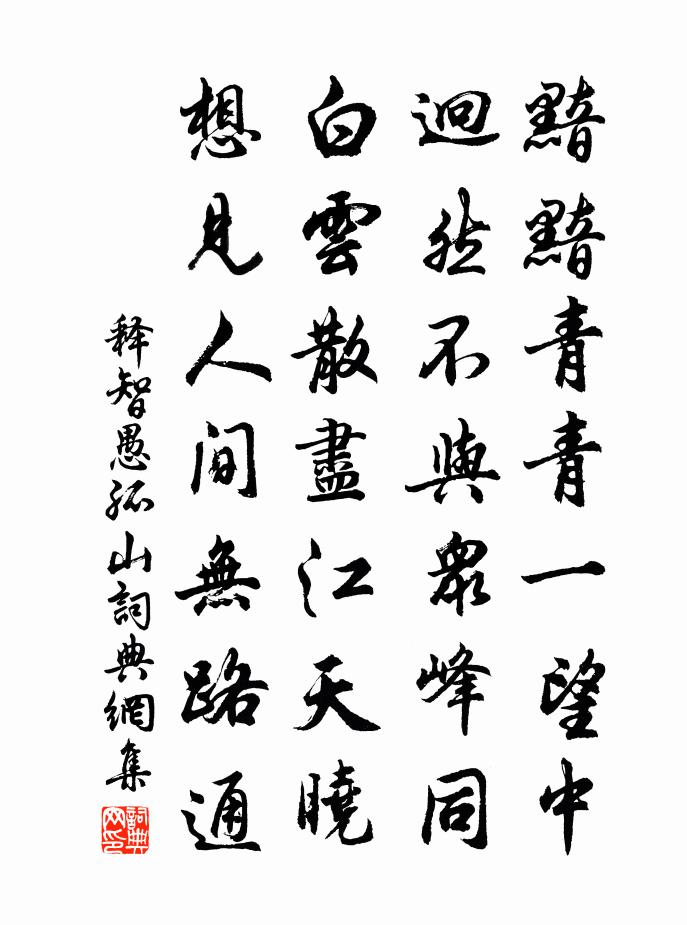 黯黯青青一望中
迥然不與衆峰同
白雲散盡江天曉
想見人間無路通
释智愚孤山詞典網集
詞典网印